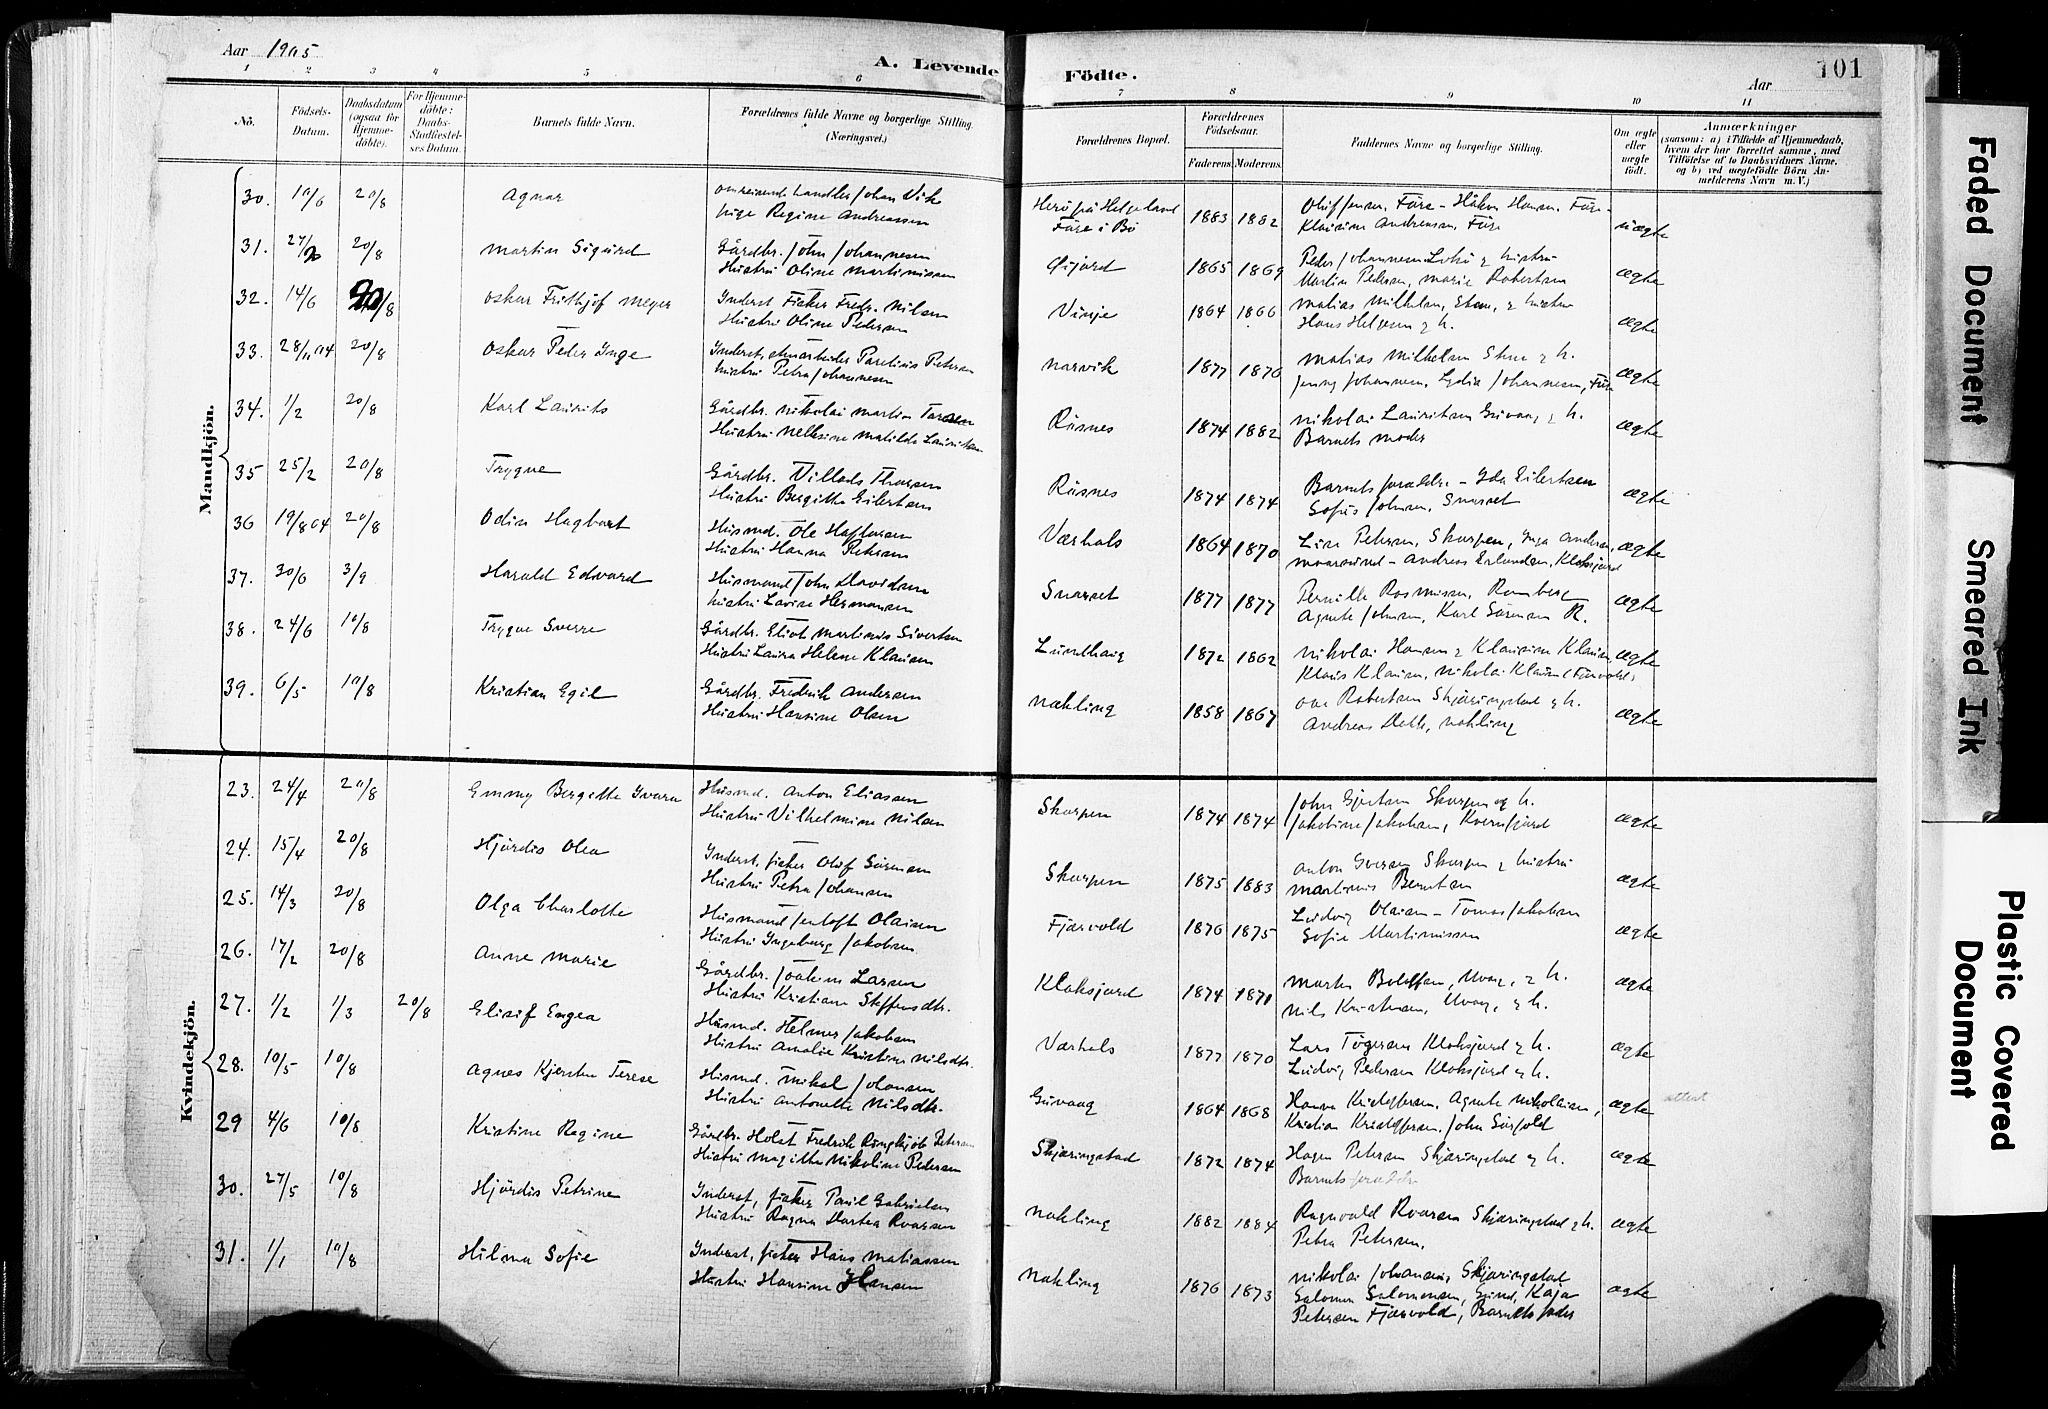 Aar 1905
A. Levende Födte.
Aar
101
1 2 3 4 5 6 7 8 9 10 11
Nö.
Födsels-
Datum.
Daabsdatum
(ogsaa for
Hjemme-
döbte).
For Hjemme-
döbte:
Daabs-
Stadfæstel-
ses Datum.
Barnets fulde Navn.
Forældrenes fulde Navne og borgerlige Stilling.
(Næringsvei.)
Forældrenes Bopæl.
Forældrenes
Födselsaar.
Faderens. Moderens.
Faddernes Navne og borgerlige Stilling.
Om ægte
eller
uægte
födt.
Anmærkninger
(saasom: a) i Tilfælde af Hjemmedaab,
hvem der har forrettet samme, med
Tilföielse af to Daabsvidners Navne,
og b) ved uægtefödte Börn An-
melderens Navn m. V.)
Mandkjön.
30. 10/6 20/8 Agnar omreisende handler Johan Vik
pige Regine Andreassen
Herö på Helgeland
Före i Bö
1883 1882
Oluf Jensen, Före - Håkon Hansen, Före
Klausine Andreassen, Före
uægte
31. 20/8 Martin Sigurd Gårdbr. John Johannesen
Hustru Oline Martinussen
1865 1869
Peder Johannesen & hustru
Martin Pedersen, Marie Robertsen
ægte
32. 14/6 20/8 Oskar Frithjof Meyer Inderst Fisker Fredr. Nilsen
Hustru Oline Pedersen
Vinje 1864 1866
Matias Milhelsen, & hustru
Hans Helgesen & h.
ægte
33. 28/11 04 20/8 Oskar Peder Inge Inderst, Parelius Petersen
hustru Petra Johannesen
Narvik 1877 1870
Matias Milhelsen & h.
Jenny Johannesen, Lydia Johannesen, Före
ægte
34. 1/2 20/8 Karl Laurits Gårdbr. Nikolai Martin
Hustru Nelusine Matilde Lauritsen
Risnes 1874 1882
Nikolai Lauritsen Guvaag & h.
Barnets moder
ægte
35 25/2 20/8 Trygve Gårdbr. Villads Thoresen
Hustru Bergitte Eilertsen
Risnes 1874 1874
Barnets forældre - Ida Eilertsen
Sofus Johnsen, Snarset
ægte
36 19/8 04 20/8 Odin Hagbart Husmd. Ole Haftorsen
Hustru Hanna Petersen
Værhals 1864 1870
Lina Petersen, Skarpen, Inga Andersen,
- Andreas Erlandsen, Kloksjord
ægte
37. 30/6 3/9 Harald Edvard Husmand John Davidsen
hustru Lovise Hermansen
Snarset 1877 1877
Pernille Rasmussen, Ramberg
Agnete Johnsen, Karl Sörensen R.
ægte
38. 24/6 10/8 Trygve Sverre Gårdbr. Eliot Martinus Sivertsen
Hustru Laura Helene Klausen
Lundhaug 1872 1862
Nikolai Hansen & Klausine Klausen,
Klaus Klausen, Nikolai Klausen (Fjærvold)
ægte
39. 6/5 10/8 Kristian Egil Gårdbr. Fredrik Andersen
Hustru Hansine Olsen
Nakling 1858 1867
Ove Robertsen Skjæringstad & h.
Andreas, Nakling
ægte
Kvindekjön.
23. 24/4 20/8 Emmy Bergitte Ivara Husmd. Anton Eliassen
Hustru Vilhelmine Nilsen
Skarpen 1874 1874
John Gjertsen Skarpen og h.
Jakobine Jakobsen, Kvernfjord
ægte
24. 15/4 20/8 Hjördis Olea Inderst, fisker Oluf Sörensen
Hustru Petra Johansen
Skarpen 1875 1883
Anton Iversen Skarpen & hustru
Martinus Berntsen
ægte
25. 14/3 20/8 Olga Charlotte Husmand Jentoft Olaisen
Hustru Ingeborg Jakobsen
Fjærvold 1876 1875
Ludvig Olaisen - Tomas Jakobsen
Sofie Martinussen
ægte
26. 17/2 20/8 Anne Marie Gårdbr. Joakim Larsen
Hustru Kristiane Steffensdtr.
Kloksjord 1874 1871
Morten, Uvaag, & h.
Nils Kristensen, Uvaag, & h.
ægte
27. 1/2 1/3 20/8 Elisif Engea Husmd. Helmer Jakobsen
Hustru Amalie Kristine Nilsdtr.
Værhals 1877 1870
Lars Tögersen Kloksjord & h.
Ludvig Pedersen Kloksjord & h.
ægte
28. 10/5 10/8 Agnes Kjersten Terese Husmd. Mikal Johansen
Hustru Antonette Nilsdtr.
Guvaag 1864 1868
Hanna Kristoffersen, Agnete Nikolaisen,
Kristian Kristoffersen, John Sörfold
ægte attest
29 4/6 10/8 Kristine Regine Gårdbr. Holst Fredrik Ringkjöb Petersen
Hustru Magitta Nikoline Pedersen
Skjæringstad 1872 1874
Hagen Petersen Skjæringstad & h.
Barnets forældre
ægte
30. 27/5 10/8 Hjördis Petrine Inderst, fisker Paul Gabrielsen
Hustru Ragna Dortea Roarsen
Nakling 1882 1884
Ragnvald Roarsen Skjæringstad & h.
Petra Petersen.
ægte
31. 1/1 10/8 Hilma Sofie Inderst, fisker Hans Matiassen
Hustru Hansine Hansen
Nakling 1876 1873
Nikolai Johansen, Skjæringstad
Salomon Salomonsen, Grund, Kaja
Petersen Fjærvold, Barnets fader
ægte
Faded Document
Smeared Ink
Plastic Covered
Document